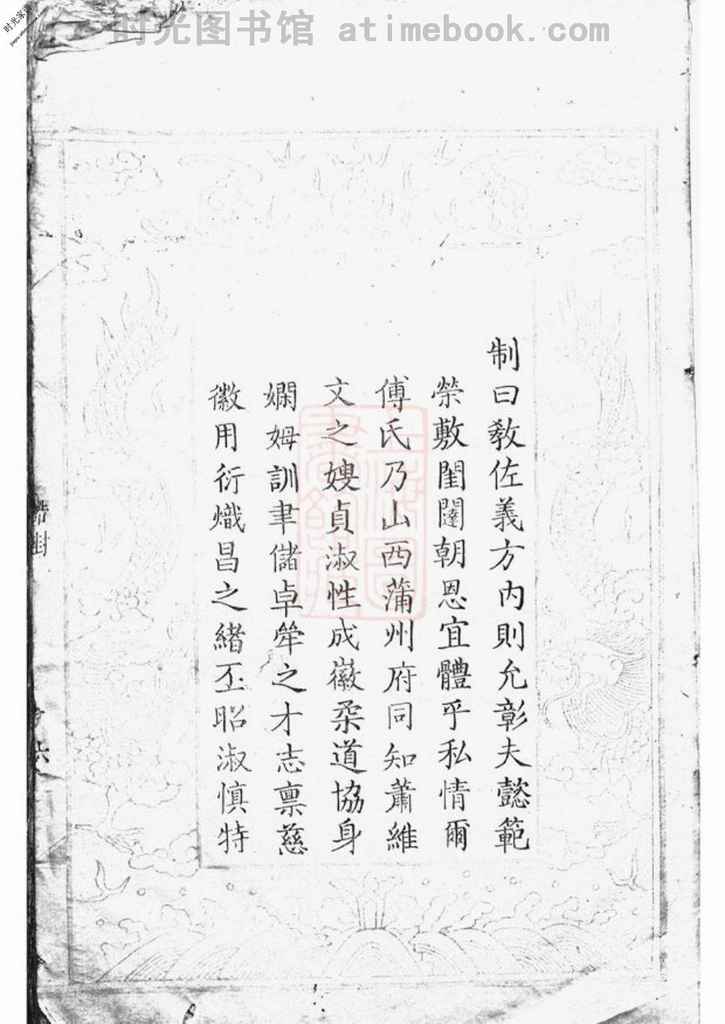 时光图书馆 atimebook.com
制曰敎佐義方内則允彰夫懿範
榮敷閨闥朝恩宜體乎私情爾
傅氏乃山西蒲州府同知蕭維
文之嫂貞淑性成徽柔道協身
嫻姆訓聿儲卓犖之才志禀慈
徽用衍熾昌之緒丕昭淑慎特
誥封
六